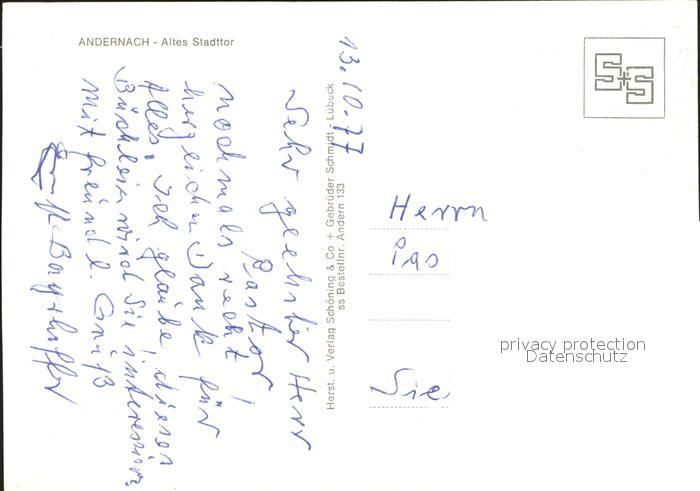 ANDERNACH - Altes Stadttor
13.10.77
Sehr geehrter Herr
Pastor!
nochmals recht
herzlichen Dank für
Alles. Ich glaube, dieses
Büchlein wird Sie interessieren.
Mit freundl. Gruß
Herst. u. Verlag Schöning & Co + Gebrüder Schmidt - Lübeck
ss Bestellnr. Andern 133
S+S
Herrn
Pas
Sie
privacy protection
Datenschutz